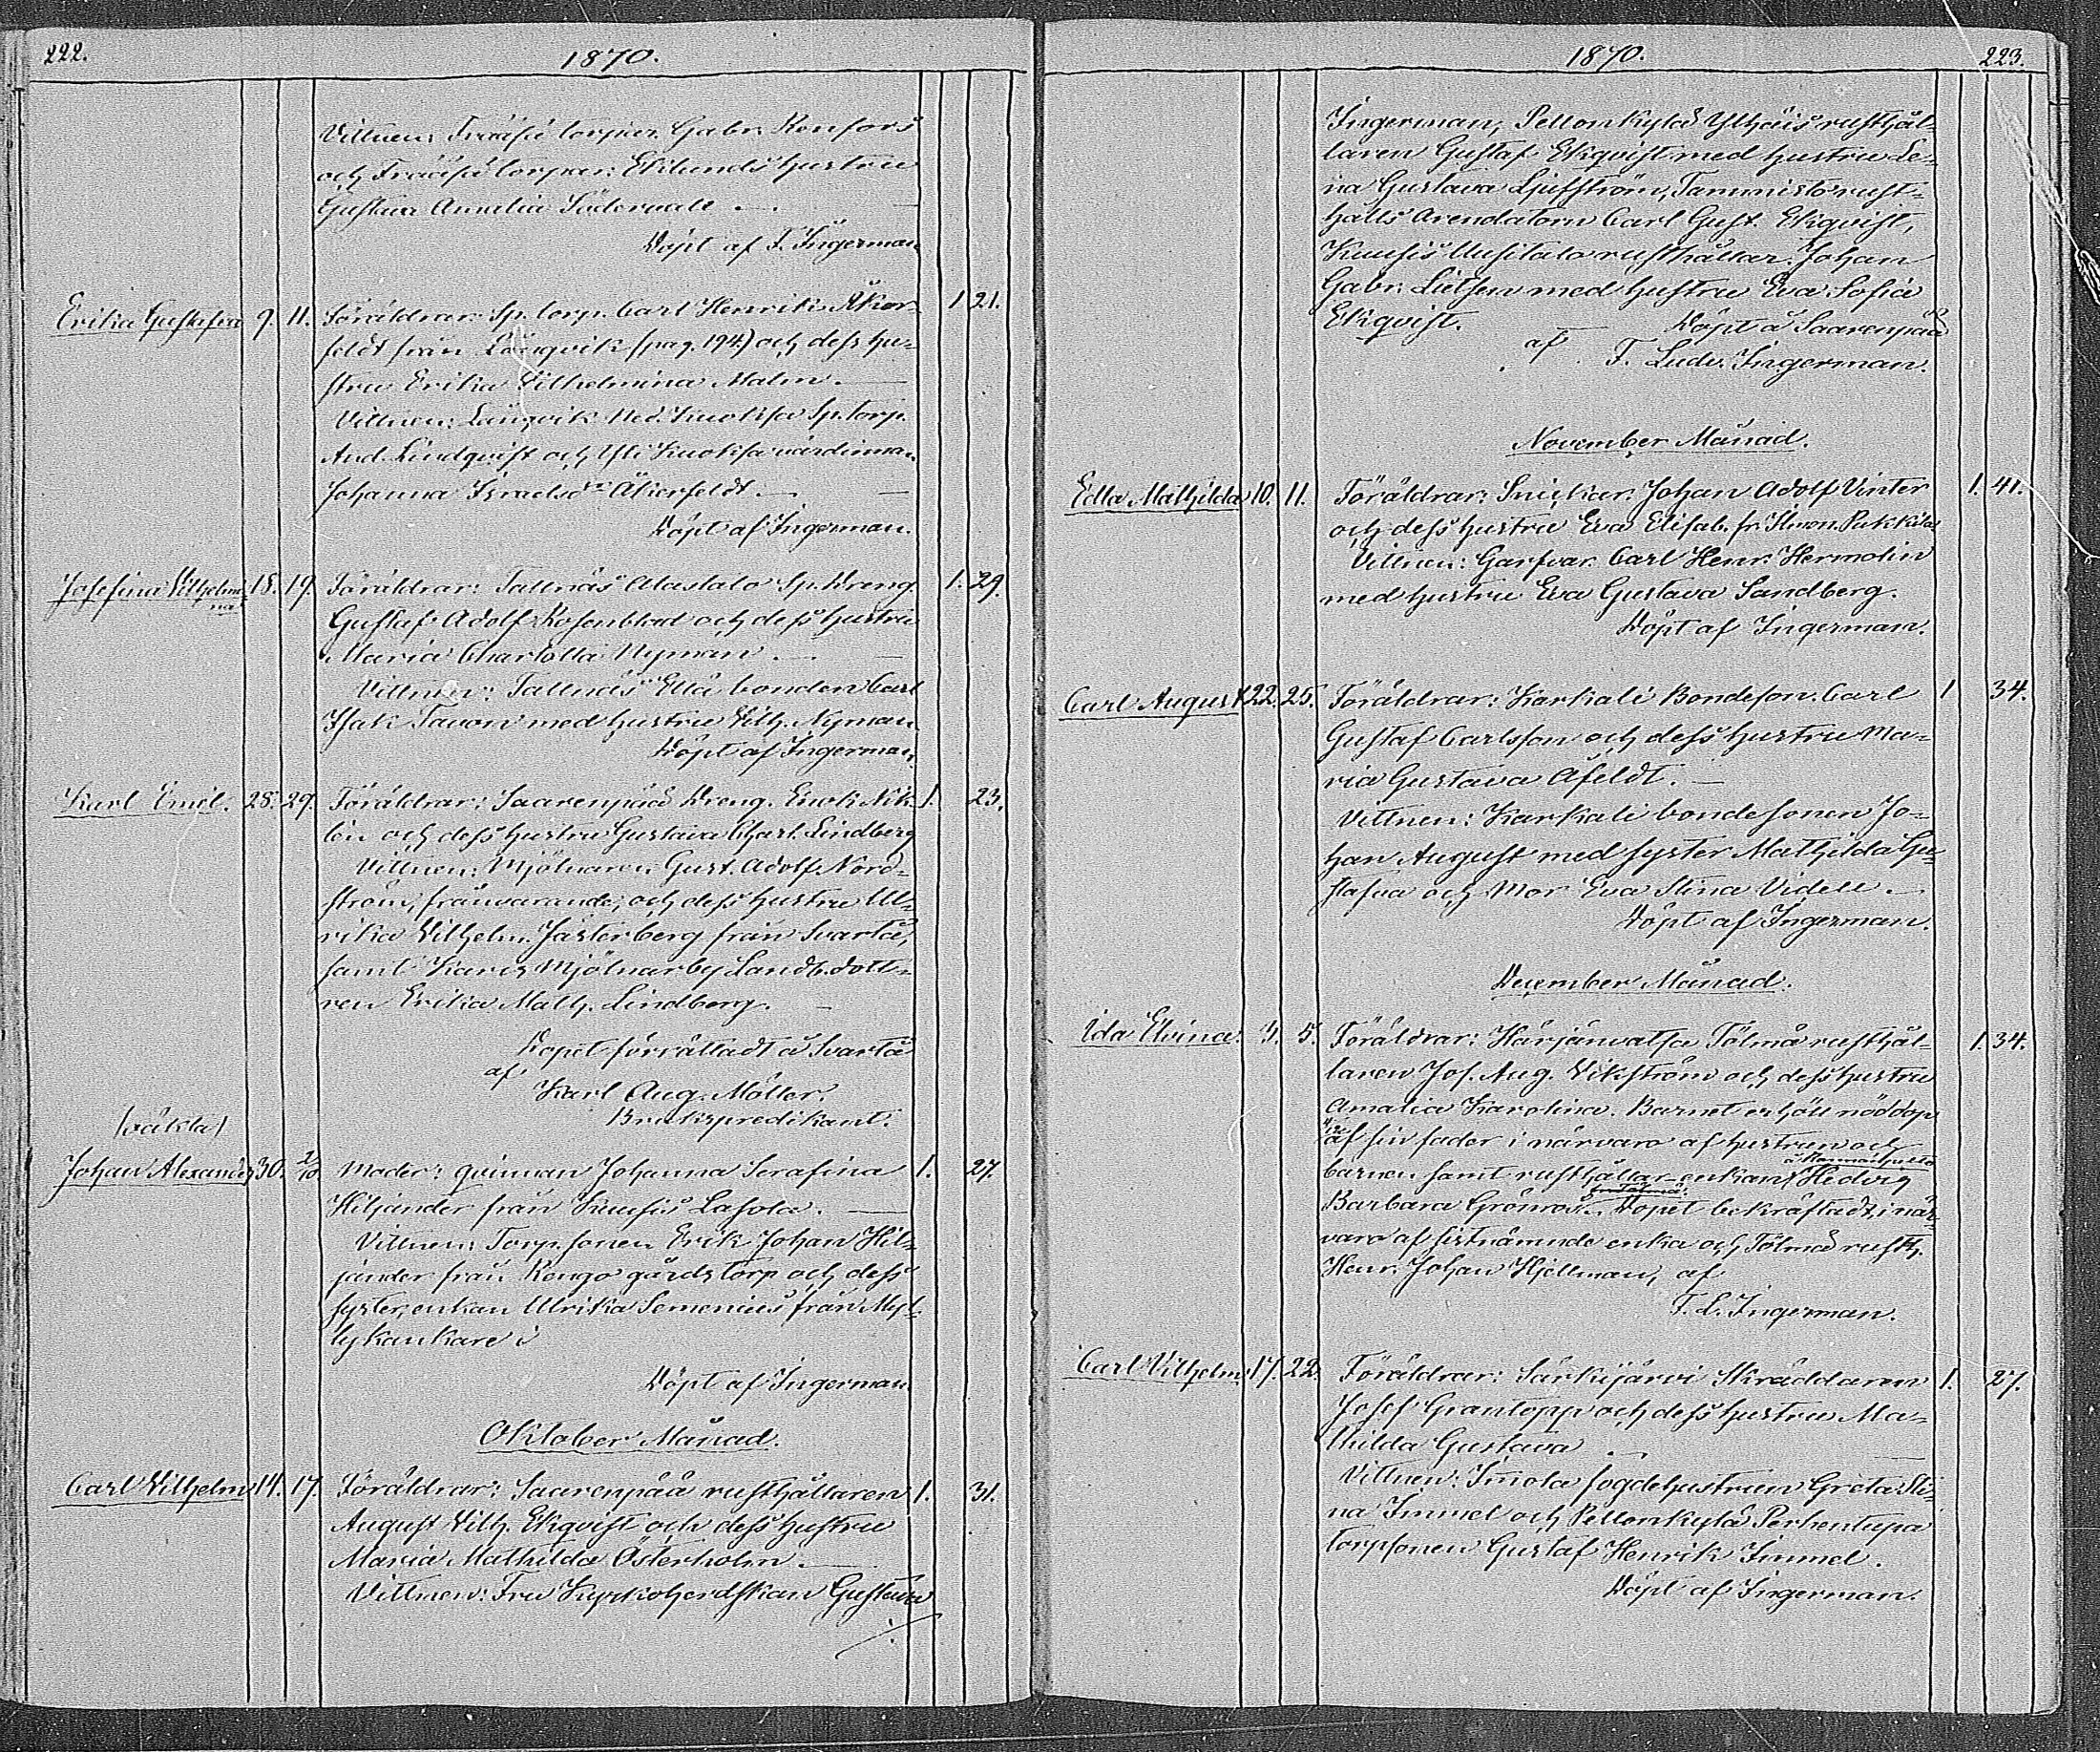 222.
1870.
Vittnen: Träskj torpar. Gabr. Renfors
och Träskj torpar: Eklunds hustru
Gustava Amalia Södervall.
Döpt af F. Ingerman
Erika Gustafva 9. 11. Föräldrar: Sp. torp. Carl Henrik Åker- 1 21.
feldt från Långvik (pag. 194) och dess hu-
stru Erika Vilhelmina Malm.
Vittnen: Långvik Ned. Kuoksa Sp. torp.
And. Lindqvist och Yli Kuoksa värdinnan
Johanna Israelsdr Åkerfeldt.
Döpt af Ingerman.
Josefina Vilhelmi- 18. 19. Föräldrar: Tallnäs Alastalo Sp. Dreng. 1. 29.
na
Gustaf Adolf Rosenblad och dess hustru
Maria Charlotta Nyman.
Vittnen: Tallnäs Ellä bonden Carl
Isak Tauon med hustru Vilh. Nyman
Döpt af Ingerman,
Karl Emil. 28. 29. Föräldrar: Saarenpää Dreng. Enok Nik- 1. 23.
lén och dess hustru Gustava Charl. Lindberg
Vittnen: Mjölnaren Gust. Adolf Nord-
ström, frånvarande, och dess hustru Ul-
rika Vilhelm. Jästerberg från Svartå,
samt Karis Mjölnarby Landb. dott-
ren Erika Math. Lindberg.
Dopet förrättadt å Svartå
af
Karl Aug. Möller.
Brukspredikant.
(oäkta)
Johan Alexander 30. 2/10. Moder: qvinnan Johanna Serafina 1. 27.
Hiljander från Kuusis Lassola.
Vittnen: Torp. sonen Erik Johan Hil-
jander från Kongo gårds torp och dess
syster, enkan Ulrika Semenius från Myl-
lykankare
Döpt af Ingerman
Oktober Månad.
Carl Vilhelm 14. 17. Föräldrar: Saarenpää rusthållaren 1. 31.
August Vilh. Ekqvist och dess hustru
Maria Mathilda Österholm.
Vittnen: Fru Kyrkoherdskan Gustava
1870.
223.
Ingerman, Pellonkylä Ylhäis rusthål-
laren Gustaf Ekqvist med hustru Le-
na Gustava Ljufström, Tammisto rust-
hålls Arendatorn Carl Gust. Ekqvist,
Kuusis Uusitalo rusthållar. Johan
Gabr. Lietzen med hustru Eva Sofia
Ekqvist. Döpt å Saarenpää
af
F. Ludv. Ingerman.
November Månad.
Edla Mathilda 10. 11. Föräldrar: Snickar. Johan Adolf Vinter 1. 41.
och dess hustru Eva Elisab. fr. Ilmon. Pukkila
Vittnen: Garfvar. Carl Henr. Hermolin
med hustru Eva Gustava Sandberg.
Döpt af Ingerman.
Carl August 22. 25. Föräldrar: Karkali Bondeson. Carl 1 34.
Gustaf Carlsson och dess hustru Ma-
ria Gustava Åfeldt.
Vittnen: Karkali bondesonen Jo-
han August med syster Mathilda Gu-
stafva och Mor Eva Stina Videll.
Döpt af Ingerman.
December Månad.
Ida Elvina. 3. 5. Föräldrar: Härjänvatsa Tölmä rusthål- 1. 34.
laren Jos. Aug. Vikström och dess hustru
Amalia Karolina. Barnet erhöll nöddop
4/12 af sin fader i närvaro af hustrun och
barnen samt rusthållar-enkan Hedvig
Barbara Grönroos. Dopet bekräftadt, i när-
varo af sistnämnde enka och Tölmä rusth.
Henr. Johan Hjellman, af
F. L. Ingerman.
Carl Vilhelm 17. 22. Föräldrar: Särkijärvi Skräddaren 1. 27.
Josef Grantopp och dess hustru Ma-
thilda Gustava
Vittnen: Immola fogdehustrun Greta Sti-
na Immel och Pellonkylä Perhentupa
torpsonen Gustaf Henrik Immel.
Döpt af Ingerman.